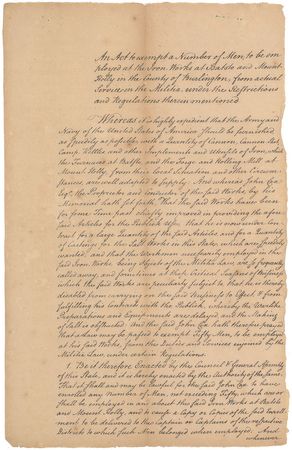 An Act to exempt a Number of Men, to be em-
ployed at the Iron Works at Batsto and Mount-
Holly in the County of Burlington, from actual
Service in the Militia, under the Restrictions
and Regulations therein mentioned.
Whereas it is highly expedient that the Army and
Navy of the United States of America should be furnished
as speedily as possible with a Quantity of Cannon, Cannon Shot,
Camp Kettles and other Implements and Utensils of Iron, which
the Furnace at Batsto, and the Forge and Rolling Mill at
Mount Holly, from their Local Situation and other Circum-
stances are well adapted to supply. And whereas John Cox
Esqr. the Proprietor and Conductor of the said Works, by his
Memorial hath set forth, That the said Works have been
for some Time past chiefly employed in providing the afore-
said Articles for the Publick Use, that he is now under Con-
tract for a large Quantity of the said Articles, and for a Quantity
of Castings for the Salt Works in this State, which are greatly
wanted, and that the Workmen necessarily employed in the
said Iron Works, being Part of the Militia, are so frequently
called away, and sometimes at those Critical Seasons of Business to
which the said Works are peculiarly subject, that he is thereby
disabled from carrying on the said Business to Effect &
fulfilling his Contracts with the Publick, whereby the Warlike
Preparations and Equipments are delayed, and the Making
of Salt is obstructed. And the said John Cox hath therefore prayed
that a Law may be passed to exempt Fifty Men, to be employed
at his said Works, from the Duties and Services enjoined by the
Militia Law, under certain Regulations.
1. Be it therefore Enacted by the Council & General Assembly
of this State, and it is hereby enacted by the Authority of the same,
That it shall and may be lawful for the said John Cox to have
enrolled any Number of Men, not exceeding Fifty, which are or
shall be employed in and about the said Iron Works at Batsto
and Mount Holly, and to cause a Copy or Copies of the said Enroll-
ment to be delivered to the Captain or Captains of the respective
Districts to which such Men belonged when employed. And
whenever